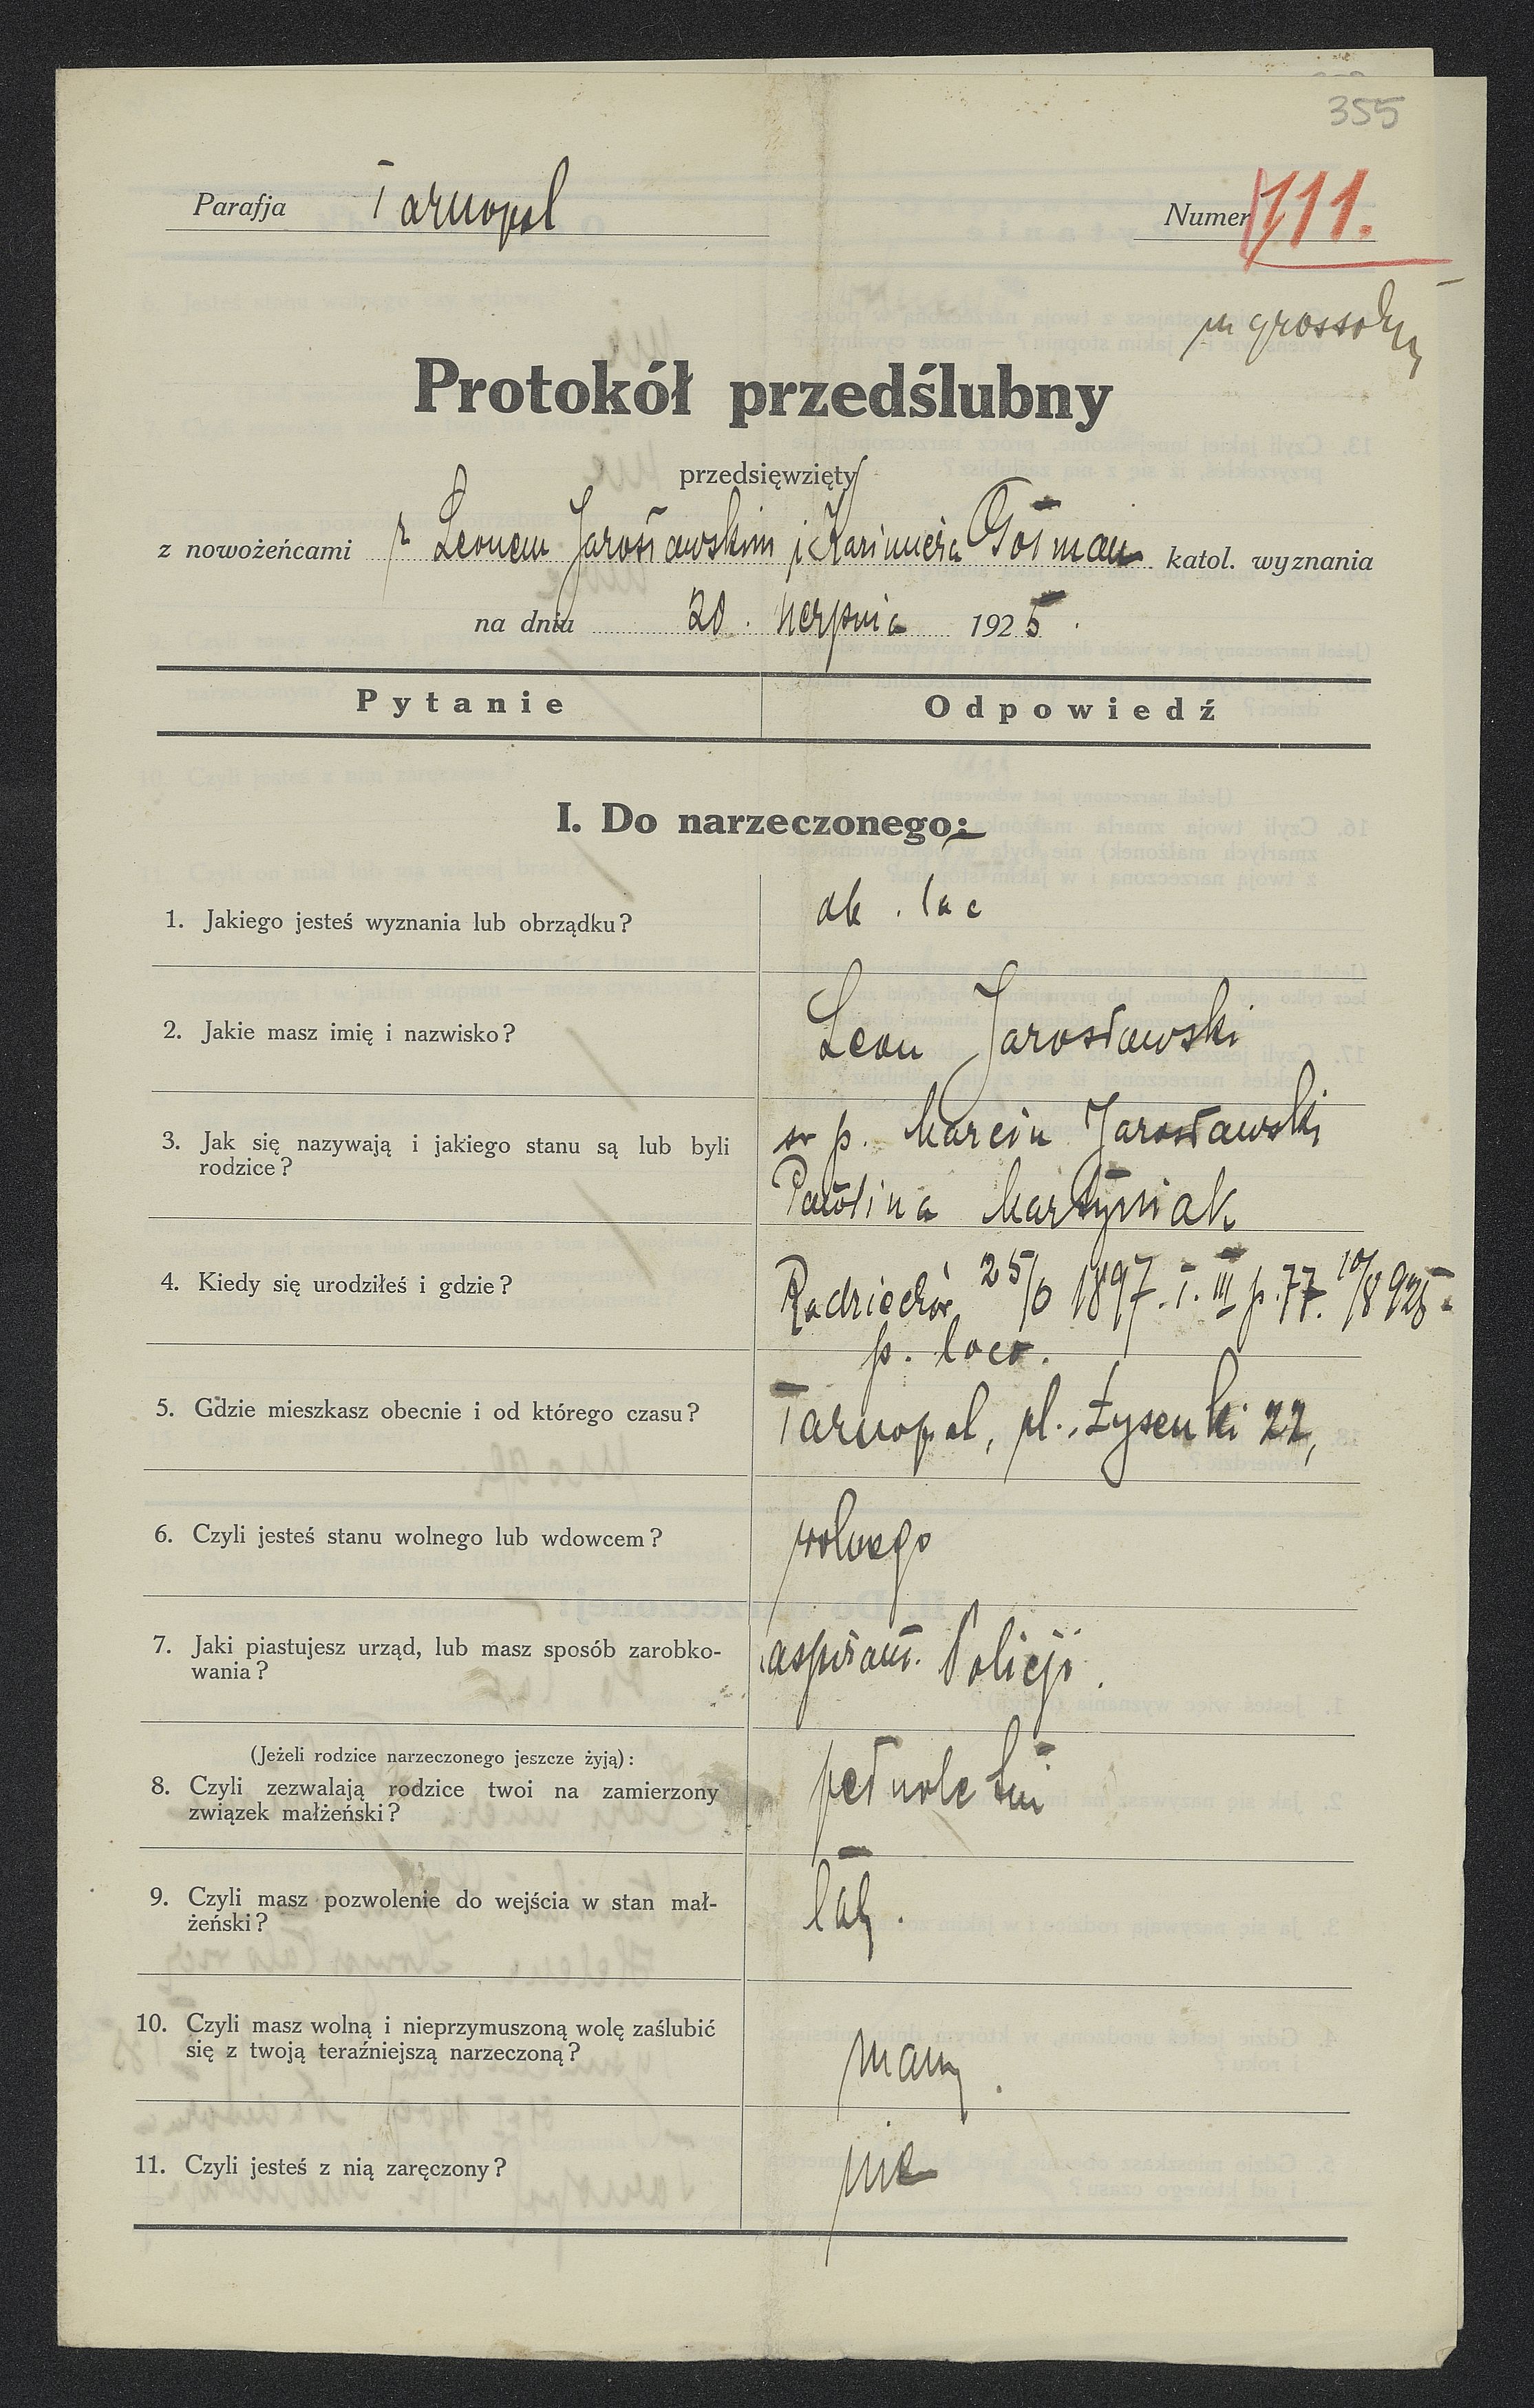 355
Parafja Tarnopol
Numer 111.
Protokół przedślubny
przedsięwzięty
z nowożeńcami z Leonem Jarosławskim i Kazimierą katol. wyznania
na dniu 20. sierpnia 1925.
Pytanie Odpowiedź
I. Do narzeczonego:
1. Jakiego jesteś wyznania lub obrządku?
ob. łac
2. Jakie masz imię i nazwisko?
Leon Jarosławski
3. Jak się nazywają i jakiego stanu są lub byli
rodzice?
ś p. Marcin Jarosławski
Paulina Martyniak
4. Kiedy się urodziłeś i gdzie?
Radziechów 1897. T. III p. 77. 10/8 925.
p. loco.
5. Gdzie mieszkasz obecnie i od którego czasu?
Tarnopol, pl. Łysenki 22,
6. Czyli jesteś stanu wolnego lub wdowcem?
wolnego
7. Jaki piastujesz urząd, lub masz sposób zarobko-
wania?
aspirant Policji.
(Jeżeli rodzice narzeczonego jeszcze żyją):
8. Czyli zezwalają rodzice twoi na zamierzony
związek małżeński?
pełnoletni
9. Czyli masz pozwolenie do wejścia w stan mał-
żeński?
tak.
10. Czyli masz wolną i nieprzymuszoną wolę zaślubić
się z twoją teraźniejszą narzeczoną?
mam.
11. Czyli jesteś z nią zaręczony?
nie